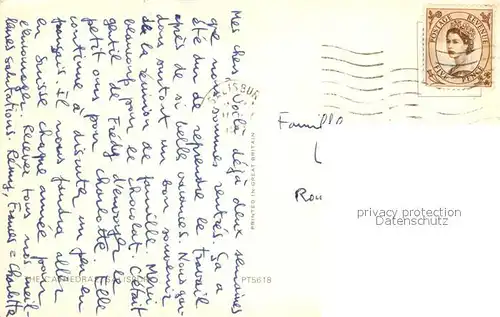 Mes chers, Voilà déjà deux semaines
que nous sommes rentrés. Ça a
été dur de reprendre le travail
après de si belle vacances. Nous gar-
dons surtout un bon souvenir
de la réunion de famille. Merci
beaucoup pour le chocolat. C'était
gentil de Frédy d'envoyer le
petit ours pour Charlotte. Elle
continue à discuter un peu en
français. Il nous faudra aller
en Suisse chaque année pour
l'encourager. Recevez tous nos meil-
leures salutations. Rémy, Frances & Charlotte
THE CATHEDRAL, SALISBURY
PT5618
PRINTED IN GREAT BRITAIN
LISBUR
POSTAGE REVENUE
Famille
Rou
privacy protection
AKPOOL.DE